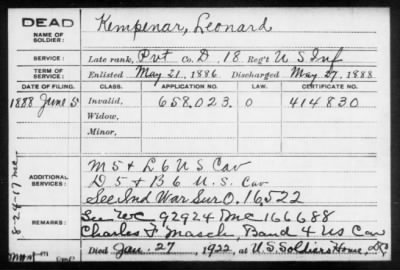 DEAD
NAME OF SOLDIER:
Kempenar, Leonard
SERVICE:
Late rank, Pvt Co. D, 18 Reg't U S Inf
TERM OF SERVICE:
Enlisted May 21, 1886. Discharged May 27, 1888.
DATE OF FILING. CLASS. APPLICATION NO. LAW. CERTIFICATE NO.
1888 June 5 Invalid, 658,023. O 414830
Widow,
Minor,
ADDITIONAL SERVICES:
M 5 & L 6 U S Cav
D 5 & B 6 U. S. Cav
See Ind War Sur O. 16522
REMARKS:
See WC 92924
166688
Charles F Masch, Band 4 US Cav
Died Jan. 27, 1922, at U.S. Soldiers Home, DC
8-24-17